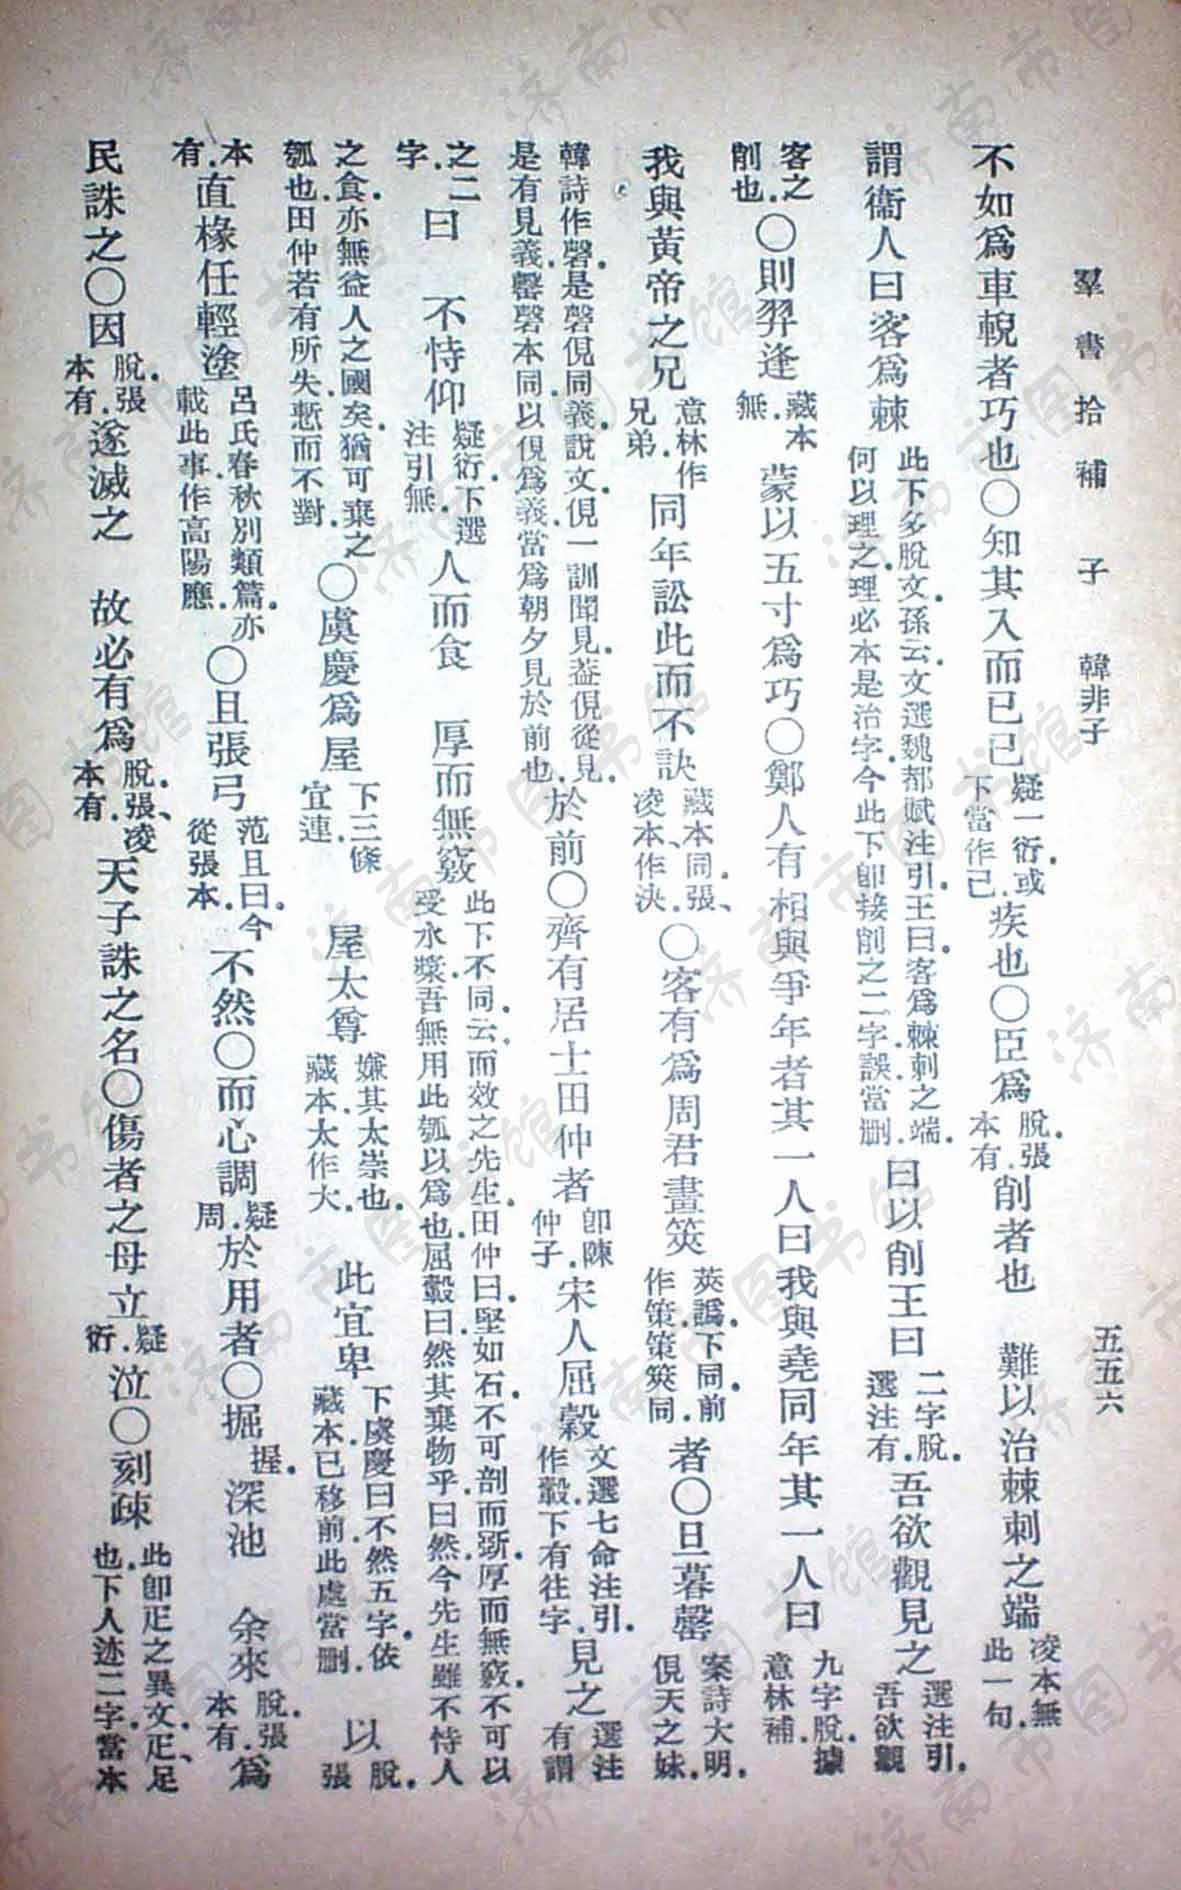 羣書拾補　子　韓非子　五五六
不如爲車輗者巧也○知其入而已已疑一衍．或下當作已．疾也○臣爲脫．張本有．削者也　難以治棘刺之端凌本無此一句．
謂衞人曰客爲棘此下多脫文．孫云．文選魏都賦注引．王曰．客爲棘刺之端．何以理之．理必本是治字．今此下卽接削之二字．誤．當刪．曰以削王曰二字脫．選注有．吾欲觀見之選注引．吾欲觀
客之削也．○則羿逢藏本無．蒙以五寸爲巧○鄭人有相與爭年者其一人曰我與堯同年其一人曰九字脫．據意林補．
我與黃帝之兄意林作兄弟．同年訟此而不訣藏本同．張、凌本作決．○客有爲周君畫筴者筴譌．下同．前作策．策筴同．○旦暮罄案詩大明．俔天之妹．
韓詩作磬．是磬俔同義．說文．俔一訓聞見．葢俔從見．是有見義．罄磬本同．以俔爲義．當爲朝夕見於前也．於前○齊有居士田仲者卽陳仲子．宋人屈穀文選七命注引．作轂．下有往字．見之選注有謂
之二字．曰　不恃仰疑衍．下選注引無．人而食　厚而無竅此下不同．云．而效之先生．田仲曰．堅如石．不可剖而斲．厚而無竅．不可以受水漿．吾無用此瓠以爲也．屈轂曰．然其棄物乎．曰然．今先生雖不恃人
之食．亦無益人之國矣．猶可棄之瓠也．田仲若有所失．慙而不對．○虞慶爲屋下三條宜連．　屋太尊嫌其太崇也．藏本太作大．　此宜卑下虞慶曰不然五字．依藏本已移前．此處當刪．　以脫．張
本有．直椽任輕塗呂氏春秋別類篇．亦載此事．作高陽應．○且張弓范且曰．今從張本．不然○而心調疑周．於用者○掘握．深池　余來脫．張本有．爲
民誅之○因脫．張本有．遂滅之　故必有爲脫．張、凌本有．天子誅之名○傷者之母立疑衍．泣○刻疎此卽疋之異文．疋、足也．下人迹二字．當本